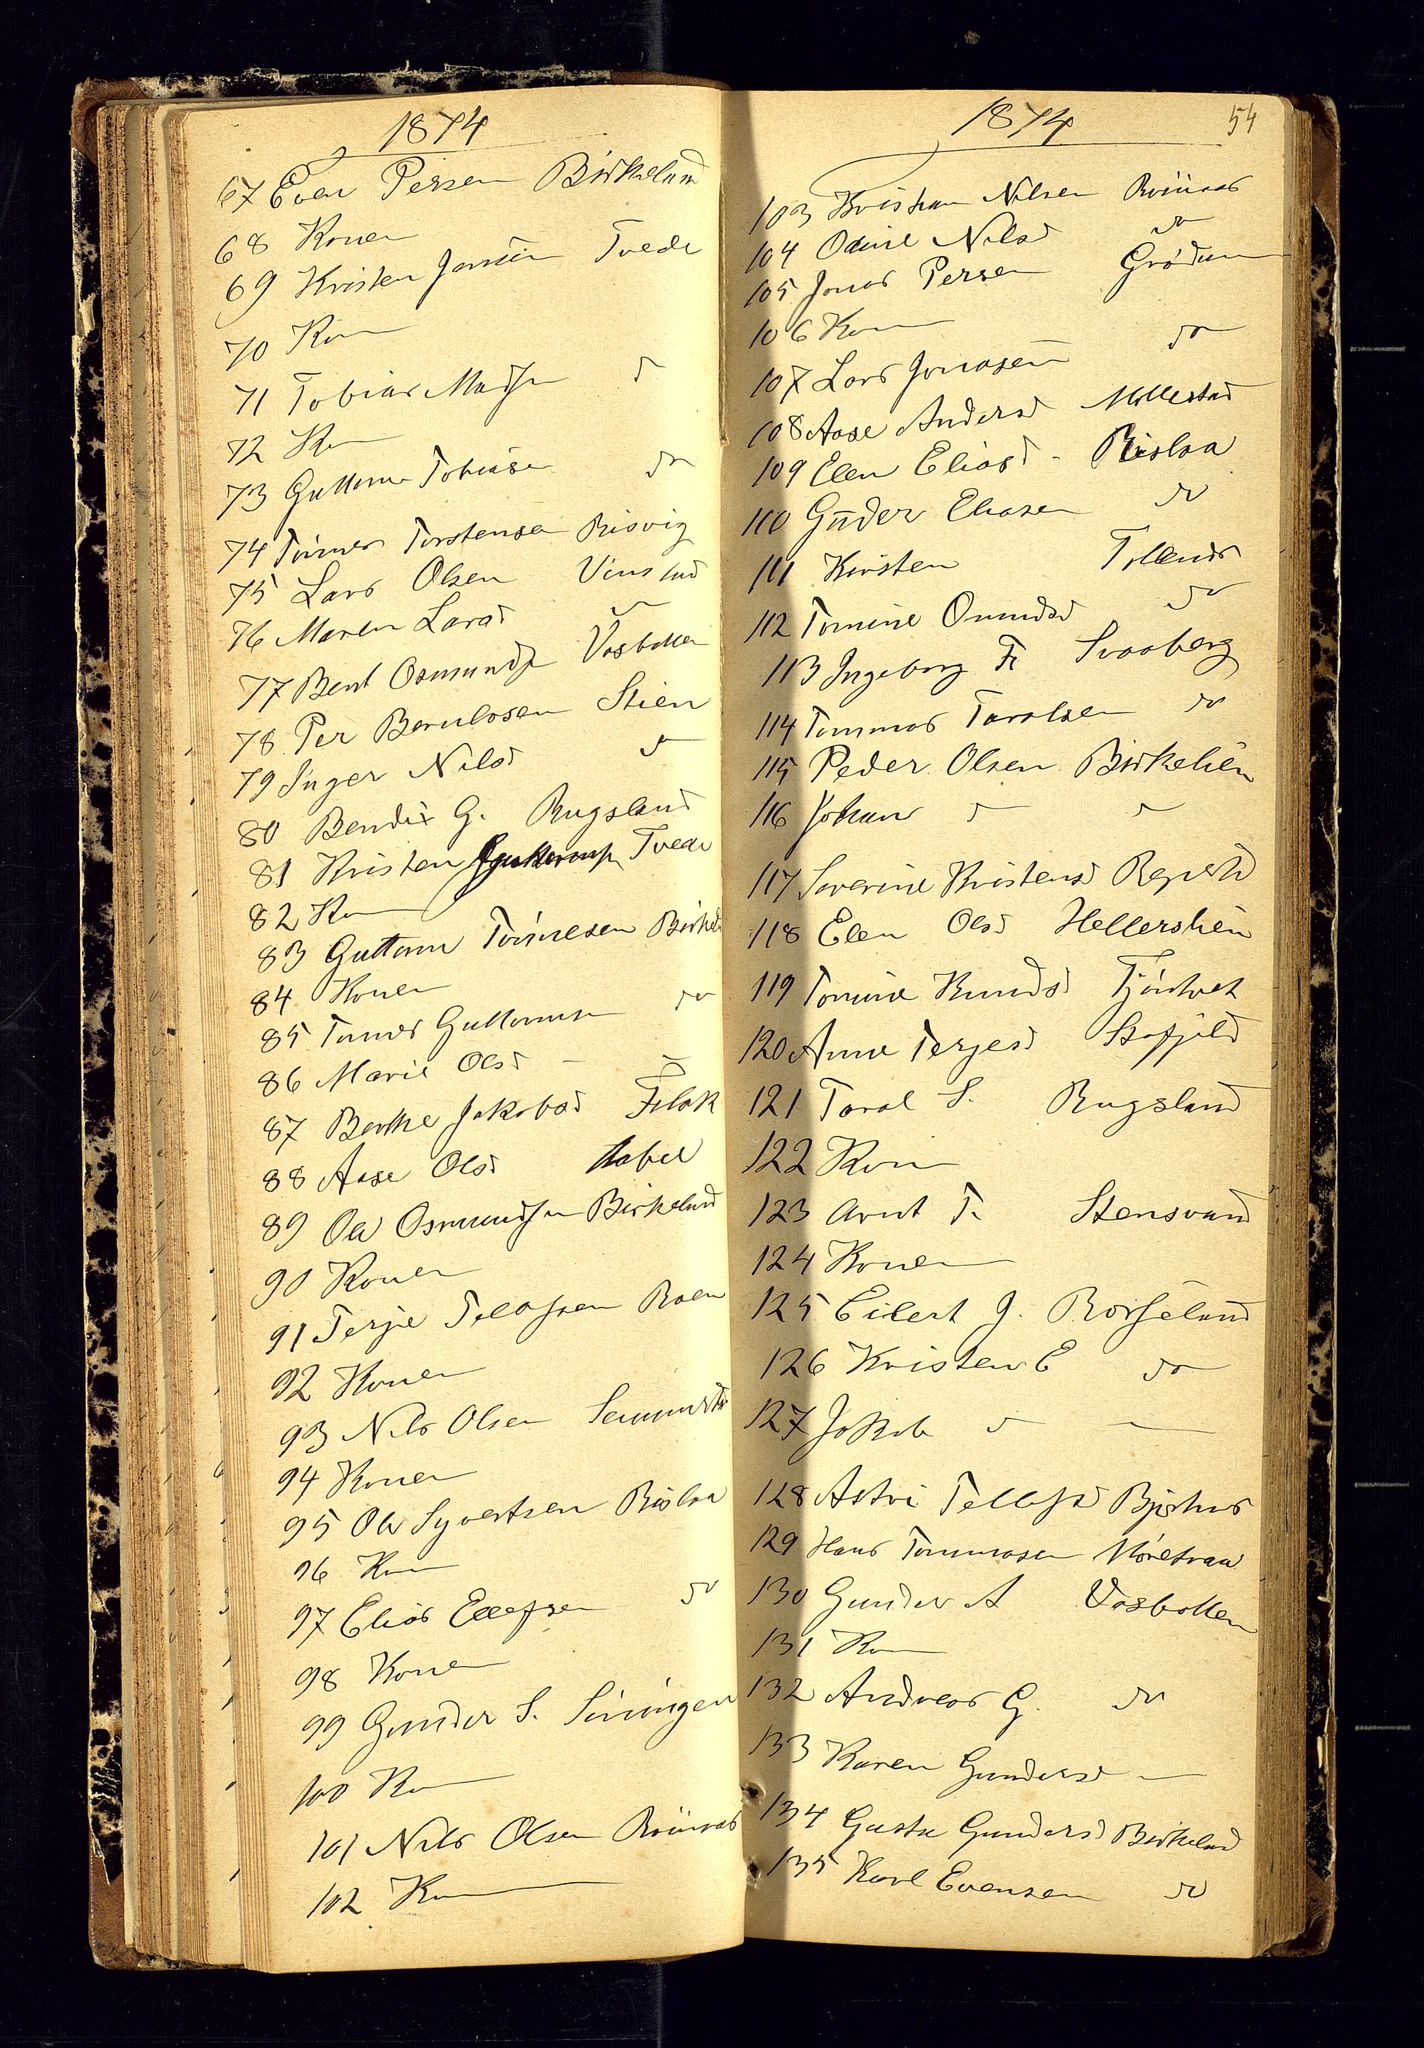 1874
67 Even Persen Birkeland
68 Konen
69 Kristen Jensen Tvede
70 Kon
71 Tobias Madsen do
72 Kn
73 Guttorm Tobiasen do
74 Tønnes Torstensen Risvig
75 Lars Olsen Vinstad
76 Maren Larsd
77 Bent Osmunds Vasbotten
78 Per Berntosen Stien
79 Inger Nilsd
80 Bendix G. Rugsland
81 Kristen Guttormsen Tvede
82 Kn
83 Guttorm Tønnesen Birkel
84 Konen
85 Tønnes Guttormsen do
86 Marie Olsd
87 Berthe Jakobsd Flak
88 Aase Olsd
89 Ole Osmundsen Birkeland
90 Konen
91 Terje Tellefsen Roen
92 Konen
93 Nils Olsen
94 Konen
95 Ole Syvertsen Rislaa
96 Kn
97 Elias Ellefsen do
98 Konen
99 Gunder S. Siringen
100 Kn
101 Nils Olsen Røinaas
102 Kn
1874 54
103 Kristian Nilsen Røinaas
104 Oline Nilsd do
105 Jonas Persen Grødum
106 Kon
107 Lars Jonasen do
108 Aase Andersd Mollestad
109 Elen Eliasd Rislaa
110 Gunder Eliasen do
111 Kirsten
112 Tomine Omundsd do
113 Ingeborg T. Svaaberg
114 Tommas Taralsen do
115 Peder Olsen Birkelien
116 Johan
117 Severine Kristensd Repstd
118 Elen Olsd Hellerslien
119 Tomine Knudsd Tjøntvet
120 Anne Terjesd
121 Taral S. Rugsland
122 Kon
123 Arnt T. Stensvand
124 Konen
125 Eilert J. Rosseland
126 Kristen E do
127 Jakob
128 Astri Tellefsd Bjorhus
129 Hans Tommasen
130 Gunder A Vasbotten
131 Kn
132 Andreas G. do
133 Karen Gundersd
134 Gusta Gundersd Birkeland
135 Karl Evensen do